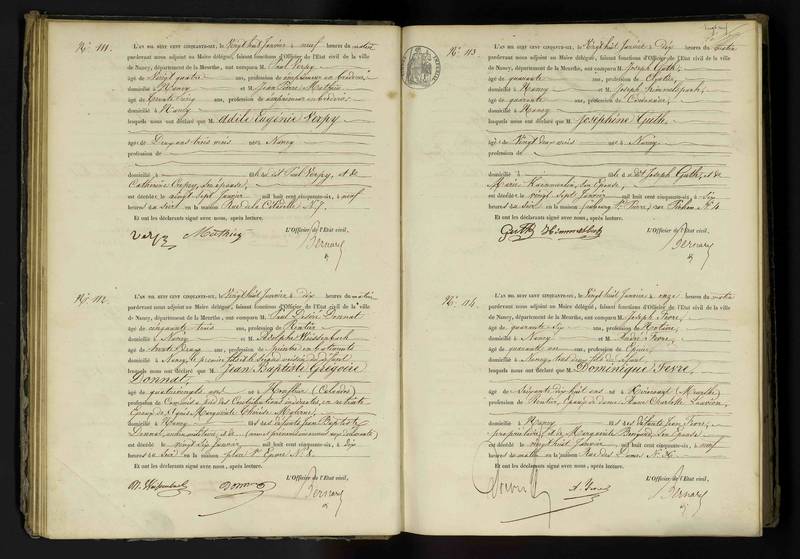 N.° 111.
L'AN MIL HUIT CENT CINQUANTE-SIX, le Vingt huit Janvier à neuf heures du matin
pardevant nous adjoint au Maire délégué, faisant fonctions d'Officier de l'Etat civil de la ville
de Nancy, département de la Meurthe, ont comparu M. Paul Verpy
âgé de Vingt quatre ans, profession de
domicilié à Nancy et M. Jean Pierre Mathieu
âgé de trente cinq ans, profession de
domicilié à Nancy
lesquels nous ont déclaré que M. Adèle Eugénie Verpy
âgé de Deux ans trois mois né à Nancy
profession de
domicilié à fille de dit Paul Verpy, et de
Catherine son épouse,
est décédé le vingt sept Janvier mil huit cent cinquante-six, à neuf
heures du soir en la maison Rue de la Citadelle N.° 7.
Et ont les déclarants signé avec nous, après lecture.
L'Officier de l'Etat civil,
Verpy Mathieu Bernard
N.° 112.
L'AN MIL HUIT CENT CINQUANTE-SIX, le Vingt huit Janvier à dix heures du matin
pardevant nous adjoint au Maire délégué, faisant fonctions d'Officier de l'Etat civil de la ville
de Nancy, département de la Meurthe, ont comparu M. Paul Désiré Donnat
âgé de cinquante trois ans, profession de Rentier
domicilié à Nancy et M. Adolphe Weissenbach
âgé de trente ans, profession de peintre en bâtiments
domicilié à Nancy, le premier fils et le second voisin du défunt
lesquels nous ont déclaré que M. Jean Baptiste Grégoire
Donnat,
âgé de quatrevingts ans né à Honfleur (Calvados)
profession de Commis à pied des Contributions indirectes, en retraite
Epoux de Marguerite Thérèse
domicilié à Nancy fils des défunts Jean Baptiste
Donnat, et de (noms et prénoms inconnus aux déclarants)
est décédé le vingt six Janvier mil huit cent cinquante-six, à dix
heures du soir en la maison place S.t Epvre N.° 8.
Et ont les déclarants signé avec nous, après lecture.
L'Officier de l'Etat civil,
A. Weissenbach Donnat Bernard
N.° 113
L'AN MIL HUIT CENT CINQUANTE-SIX, le Vingt huit Janvier à Dix heures du matin
pardevant nous adjoint au Maire délégué, faisant fonctions d'Officier de l'Etat civil de la ville
de Nancy, département de la Meurthe, ont comparu M. Joseph Guth,
âgé de quarante ans, profession de
domicilié à Nancy et M. Joseph Himmelspach,
âgé de quarante ans, profession de Cordonnier,
domicilié à Nancy
lesquels nous ont déclaré que M. Joséphine Guth
âgé de Vingt deux mois né à Nancy
profession de
domicilié à fille de dit Joseph Guth, et de
Marie son Epouse,
est décédé le vingt sept Janvier mil huit cent cinquante-six, à Six
heures du soir en la maison faubourg S.t Pierre, rue N.° 4
Et ont les déclarants signé avec nous, après lecture.
L'Officier de l'Etat civil,
Guth Himmelspach Bernard
N.° 114.
L'AN MIL HUIT CENT CINQUANTE-SIX, le Vingt huit Janvier à onze heures du matin
pardevant nous adjoint au Maire délégué, faisant fonctions d'Officier de l'Etat civil de la ville
de Nancy, département de la Meurthe, ont comparu M. Joseph Fevre,
âgé de quarante six ans, profession de
domicilié à Nancy et M. André Fevre,
âgé de quarante ans, profession de
domicilié à Nancy, tous deux fils du défunt
lesquels nous ont déclaré que M. Dominique Fevre,
âgé de Soixante dix huit ans né à (Meurthe)
profession de Rentier, Epoux de dame Anne Charlotte
domicilié à Nancy fils des défunts Jean Fevre,
propriétaire, et de Marguerite son Epouse
est décédé le vingt huit Janvier mil huit cent cinquante-six, à neuf
heures du matin en la maison Rue des Dames N.° 36.
Et ont les déclarants signé avec nous, après lecture.
L'Officier de l'Etat civil,
A. Fevre Bernard